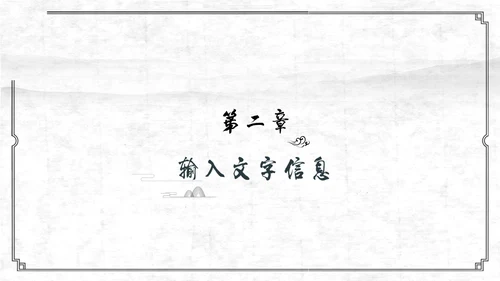 第二章
输入文字信息